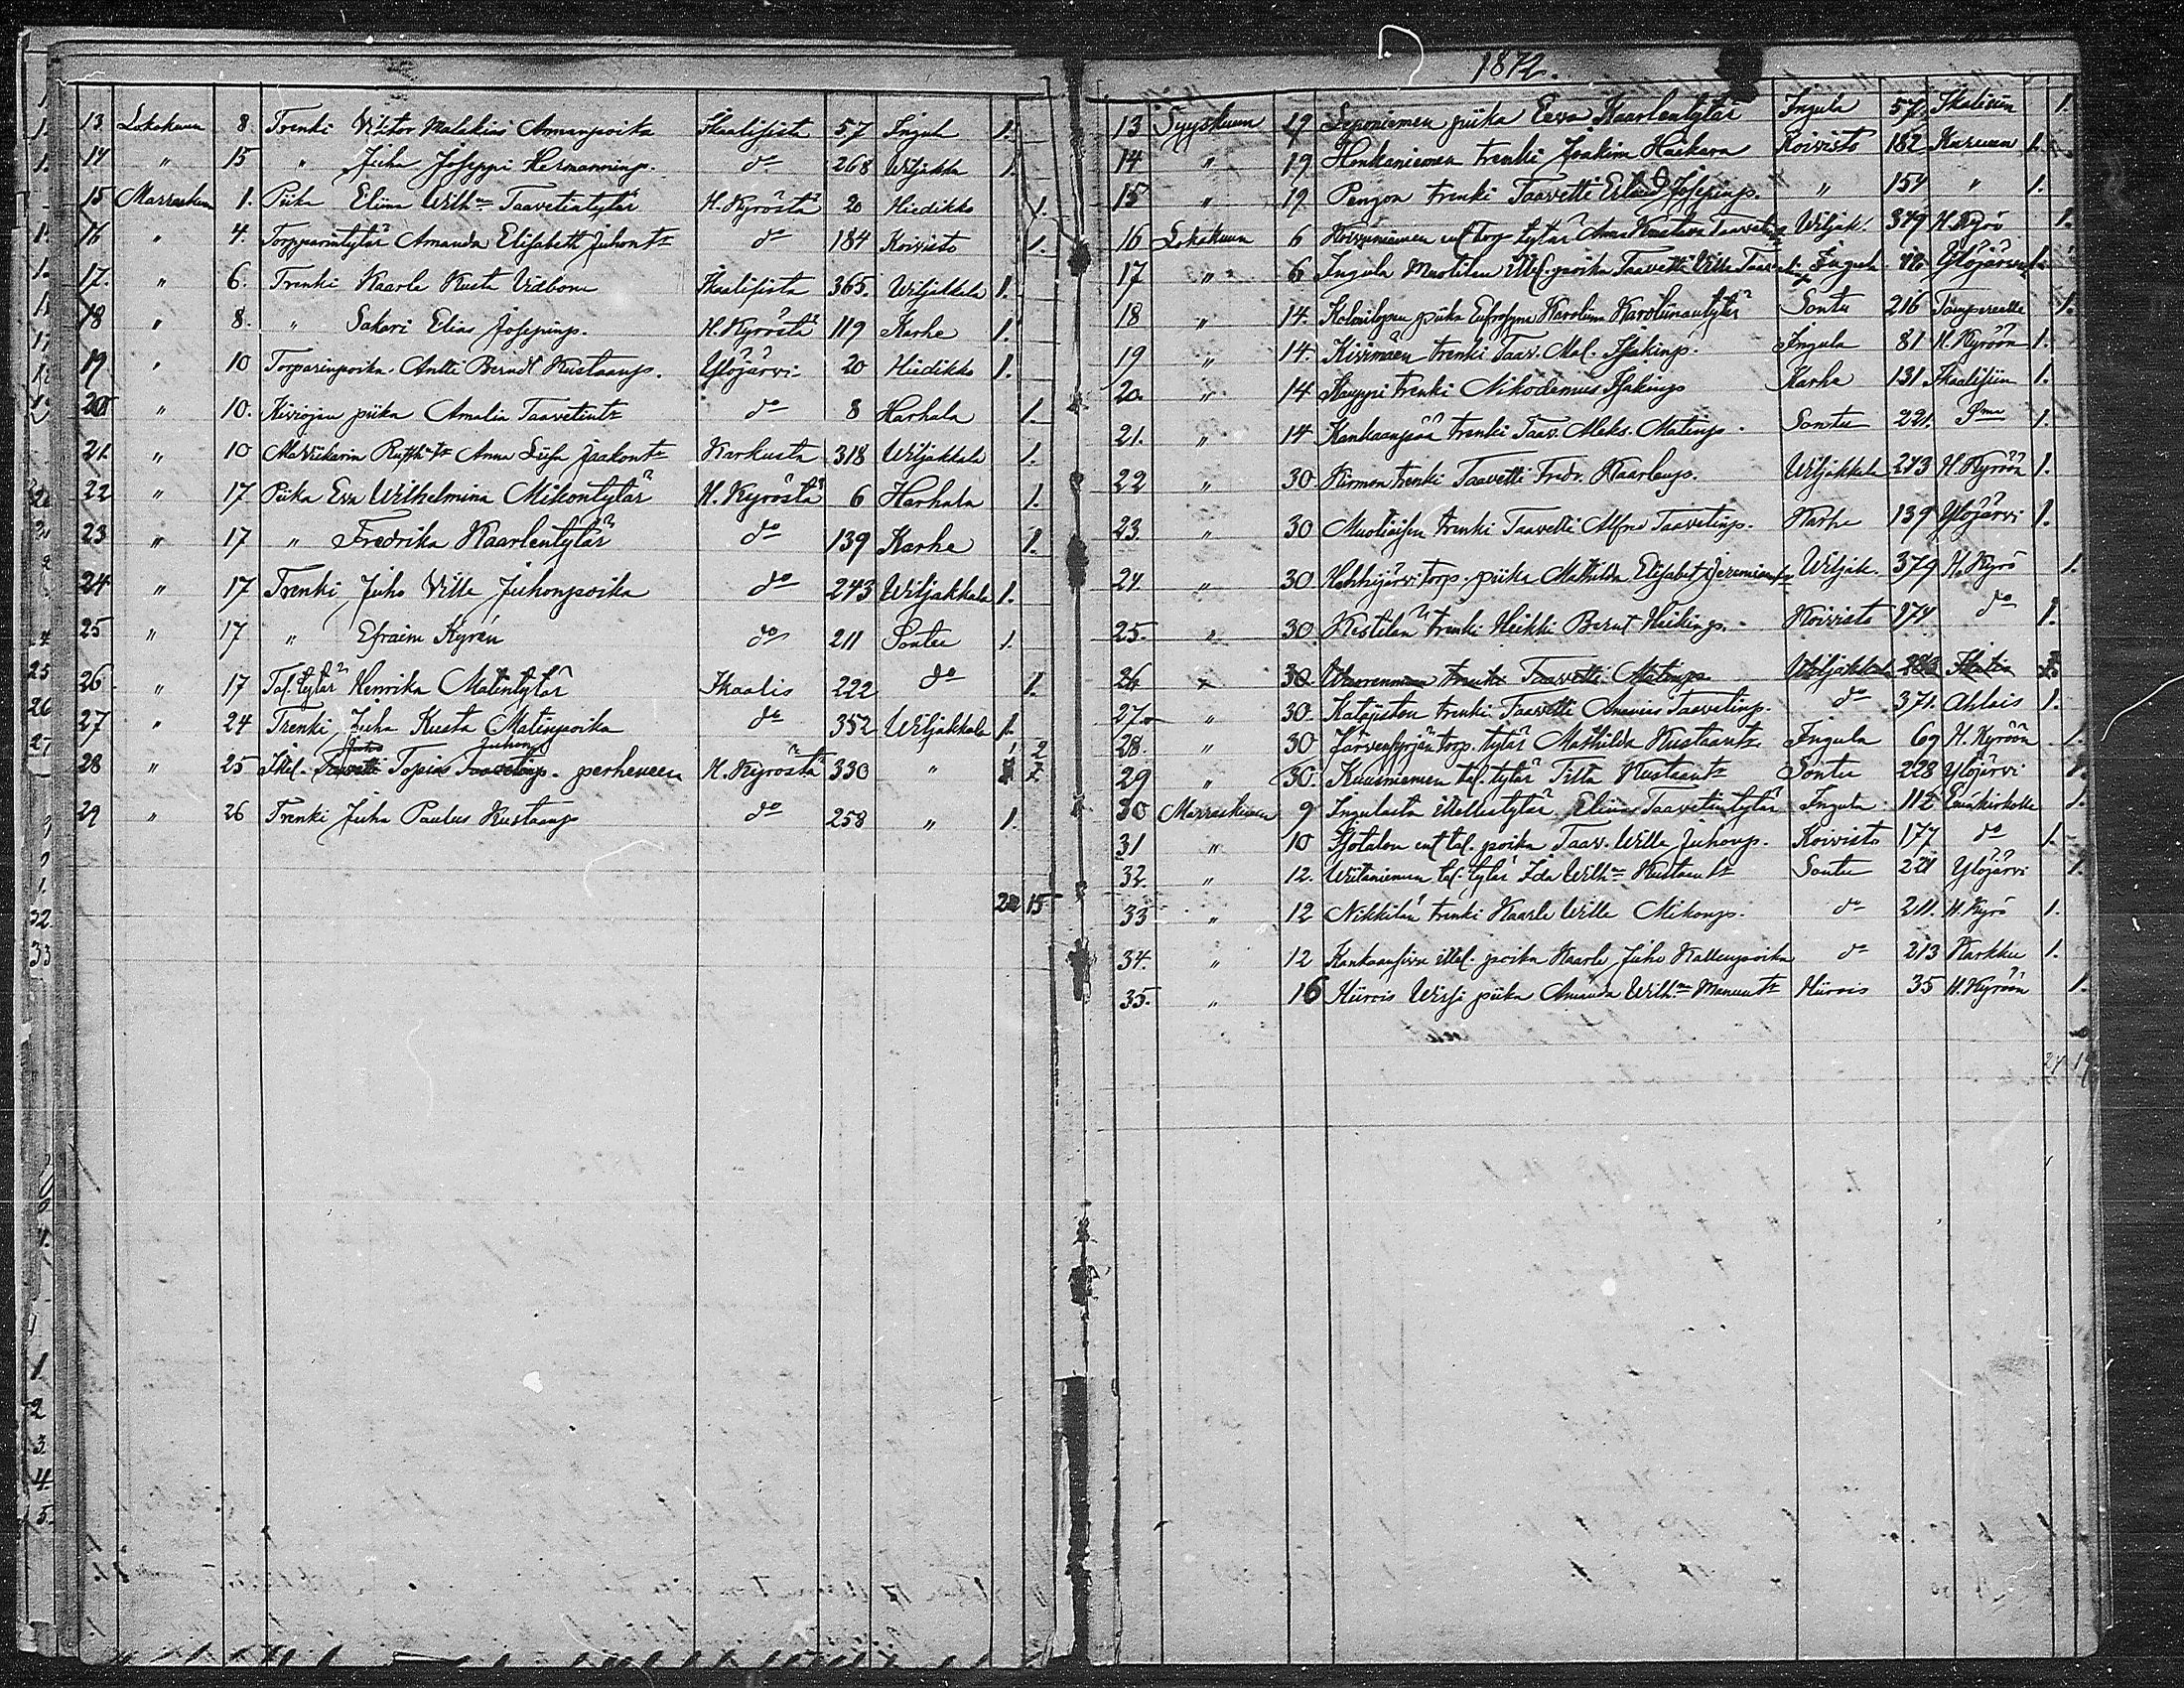 13. Lokakuun 8. Trenki Viktor Malakias Annanpoika Ikaalisista 57 Ingula 1.
14 " 15 " Juha Joseppi Hermanninp. do 268 Wiljakka 1.
15 Marraskuun 1. Piika Eliina Wilh:na Taavetintytär H. Kyröstä 20 Hiedikko 1.
16 " 4. Torpparintytär Amanda Elisabeth Juhont:r do 184 Koivisto 1.
17. " 6. Trenki Kaarle Kusta Vidbom Ikaalisista 365. Wiljakkala 1.
18 " 8. " Sakari Elias Josepinp. H. Kyröstä 119 Karhe 1.
19 " 10 Torparinpoika Antti Berndt Kustaanp. Ylöjärvi 20 Hiedikko 1.
20 " 10. Kiviojan piika Amalia Taavetint:r do 8 Harhala 1.
21. " 10 Anna Liisa Jaakont:r Karkusta 318 Wiljakkala 1.
22 " 17 Piika Eva Wilhelmina Mikontytär H. Kyröstä 6 Harhala 1.
23 " 17 " Fredrika Kaarlentytär do 139 Karhe 1.
24 " 17 Trenki Juho Ville Juhonpoika do 243 Wiljakkala 1.
25 " 17 " Efraim Kyrén do 211 Sontu 1.
26 " 17 Tal. tytär Henrika Matintytär Ikaalis 222 do 1.
27 " 24 Trenki Juha Kusta Matinpoika do 352 Wiljakkala 1.
Juho Juhonp. 1 2
28 " 25 Itel. Taavetti Topias Taavetinp. perheneen H. Kyröstä 330 "
29 " 26 Trenki Juha Paulus Kustaanp do 258 " 1.
15
1872.
13 Syyskuun 19 Leponiemen piika Eeva Kaarlentytär Ingula 57 Ikalisiin 1.
14 " 19 Honkaniemen trenki Joakim Haikara Koivisto 182 Kuruun 1.
15 " 19 Penzon trenki Taavetti Erland Josepinp. " 154 " 1.
16 Lokakuun 6 Koivuniemen ent torp tytär Anna Kustava Taavetint:r Wiljak. 379 H. Kyrö 1.
17 " 6 Ingula Muotilan Itel. poika Taavetti Ville Taavetinp. Ingula Ylöjärvi 1.
18 " 14. piika Eufrosyna Karolina Karoliinantytär Sontu 216 Tampereelle 1.
19 " 14. Kivimäen trenki Taav. Mal. Isakinp. Ingula 81 H. Kyröön 1.
20. " 14 Kauppi trenki Nikodemus Isakinp Karhe 131 Ikaalisiin 1.
21. " 14 Kankaanpää trenki Taav. Aleks. Matinp. Sontu 221. 1.
22 " 30 Kirmon trenki Taavetti Fredr. Kaarlenp. Wiljakkala 243 H. Kyröön 1.
23 " 30 trenki Taavetti Alfred Taavetinp. Karhe 139 Ylöjärvi 1.
24. " 30 Hahkijärvi torp. piika Mathilda Elisabet Jeremiant:r Wiljak. 379 H. Kyrö 1.
25. " 30 Kestilän trenki Heikki Bernt Heikinp. Koivisto 174 do 1.
26 " 30. Wuorenmaan trenki Taavetti Matinp. Wiljakkala
27. " 30. Katajiston trenki Taavetti Ananias Taavetinp. do 371. Ahlais 1.
28. " 30 Järvenpojan torp. tytär Mathilda Kustaant:r Ingula 69 H. Kyröön 1.
29 " 30. Kuusniemen tal. tytär Tilta Kustaant:r Sontu 228 Ylöjärvi 1.
30 Marraskuun 9 Ingulasta Itellestytär Eliina Taavetintytär Ingula 112 Emäkirkolle 1.
31 " 10 Isotalon ent tal. poika Taav. Wille Juhonp. Koivisto 177 do 1.
32. " 12. Wiitaniemen tal. tytär Ida Wilh:na Kustaant:r Sontu 221 Ylöjärvi 1.
33 " 12 Nikkilän trenki Kaarle Wille Mikonp. do 211. H. Kyrö 1.
34. " 12 itel. poika Kaarle Juho Kallenpoika do 213 Karkku 1.
35. " 16 Hiirois Wissi piika Amanda Wilh:na Manuut:r Hiirois 35 H. Kyröön 1.